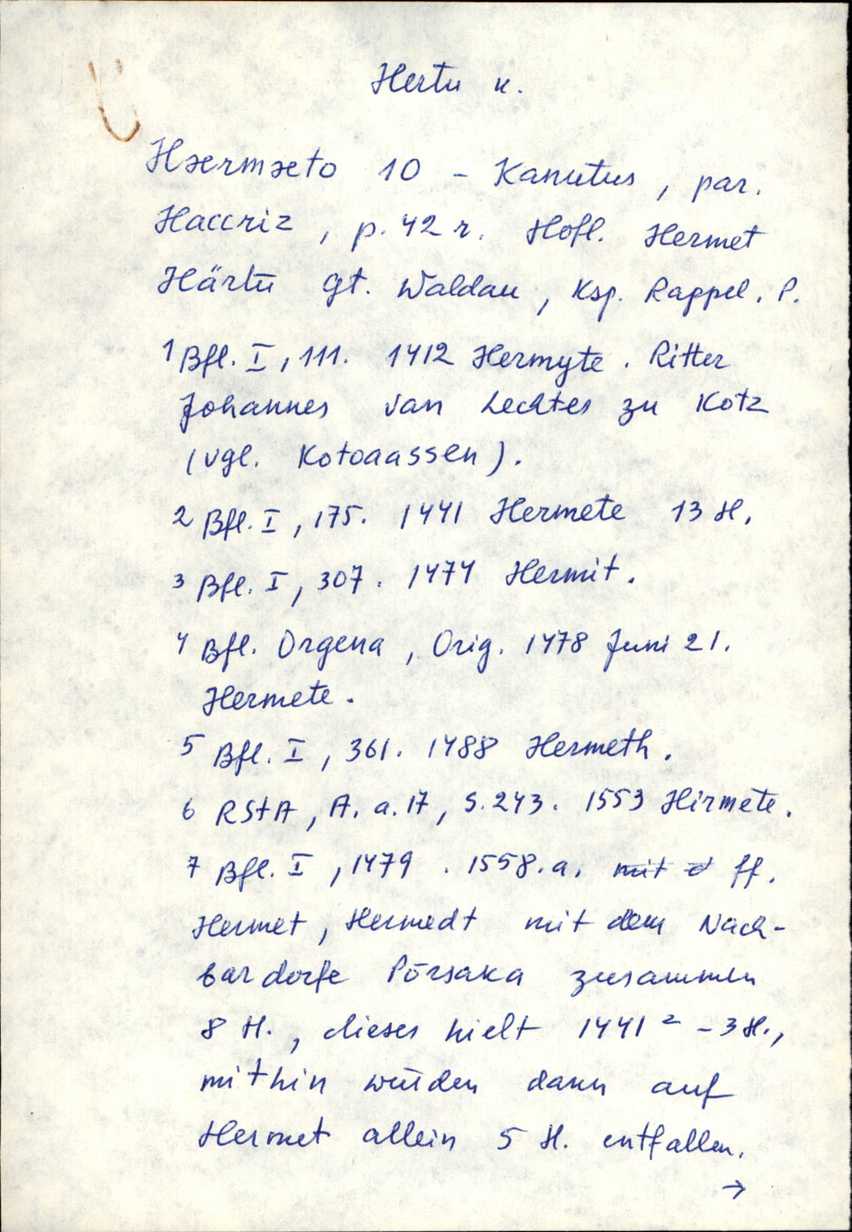 Hertu k.
Hærmæto 10 - Kanutus, par.
Haccriz, p. 42 r. Hofl. Hermet
Härtü gt. Waldau, Ksp. Rappel. P.
1 Bfl. I, 111. 1412 Hermyte. Ritter
Johannes van Lechtes zu Kotz
(vgl. Kotoaassen).
2 Bfl. I, 175. 1441 Hermete 13 H.
3 Bfl. I, 307. 1474 Hermit.
4 Bfl. Orgena, Orig. 1478 Juni 21.
Hermete.
5 Bfl. I, 361. 1488 Hermeth.
6 RStA, A. a. 17, S. 243. 1553 Hirmete.
7 Bfl. I, 1479. 1558. a. mit d ff.
Hermet, Hermedt mit dem Nach-
bardorfe Põrsaka zusammen
8 H., dieses hielt 1441 ² - 3 H.,
mithin würden dann auf
Hermet allein 5 H. entfallen.
→